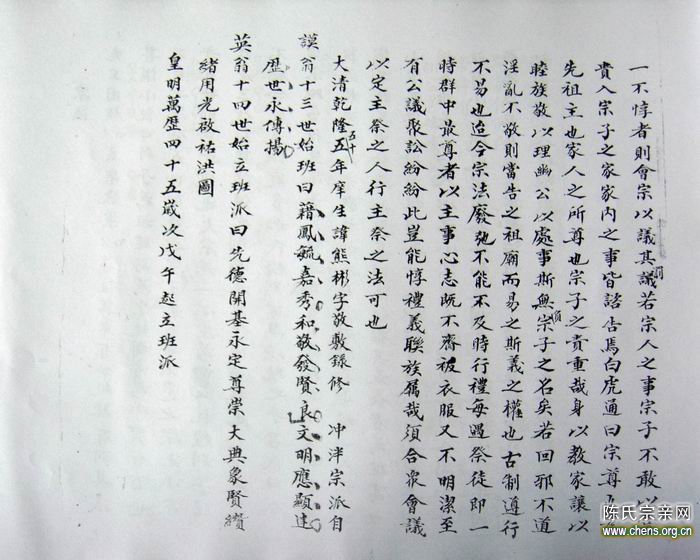 一不惇者則會宗以議其議若宗人之事宗子不敢以
貴入宗子之家家内之事皆諮告焉白虎通曰宗尊也
先祖主也家人之所尊也宗子之貴重哉身以教家讓以
睦族敬以理幽公以處事斯無宗子之名矣若回邪不道
淫亂不敬則當告之祖廟而易之斯義之權也古制遵行
不易也迨今宗法廢弛不能不及時行禮每遇祭徒即一
時群中最尊者以主事心志既不齊被衣服又不明潔至
有公議聚訟紛紛此豈能惇禮義聯族属哉須合衆會議
以定主祭之人行主祭之法可也
大清乾隆五十年庠生諱熊彬字敬敷錄修 冲泮宗派自
謨翁十三世始班曰藉鳳毓嘉秀和敬發賢良文明應顯達
歷世永傳揚
英翁十四世始立班派曰先德開基永定尊崇大典象賢纘
緒用光啟祐洪圖
皇明萬歷四十五歲次戊午起立班派
陈氏宗亲网
www.chens.org.cn